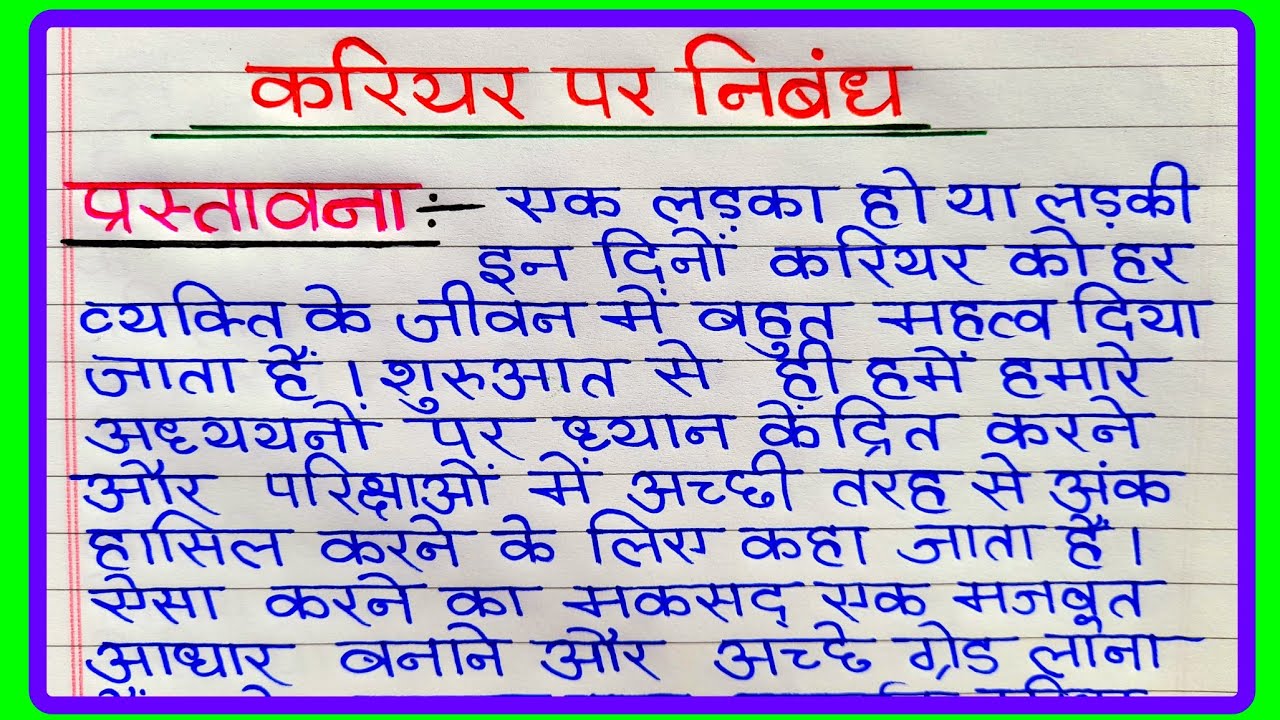 करियर पर निबंध
प्रस्तावना :- एक लड़का हो या लड़की
इन दिनों करियर को हर
व्यक्ति के जीवन में बहुत महत्व दिया
जाता हैं। शुरुआत से ही हमें हमारे
अध्ययनों पर ध्यान केंद्रित करने
और परिक्षाओं में अच्छी तरह से अंक
हासिल करने के लिए कहा जाता हैं।
ऐसा करने का मकसद एक मजबूत
आधार बनाने और अच्छे ग्रेड लाना